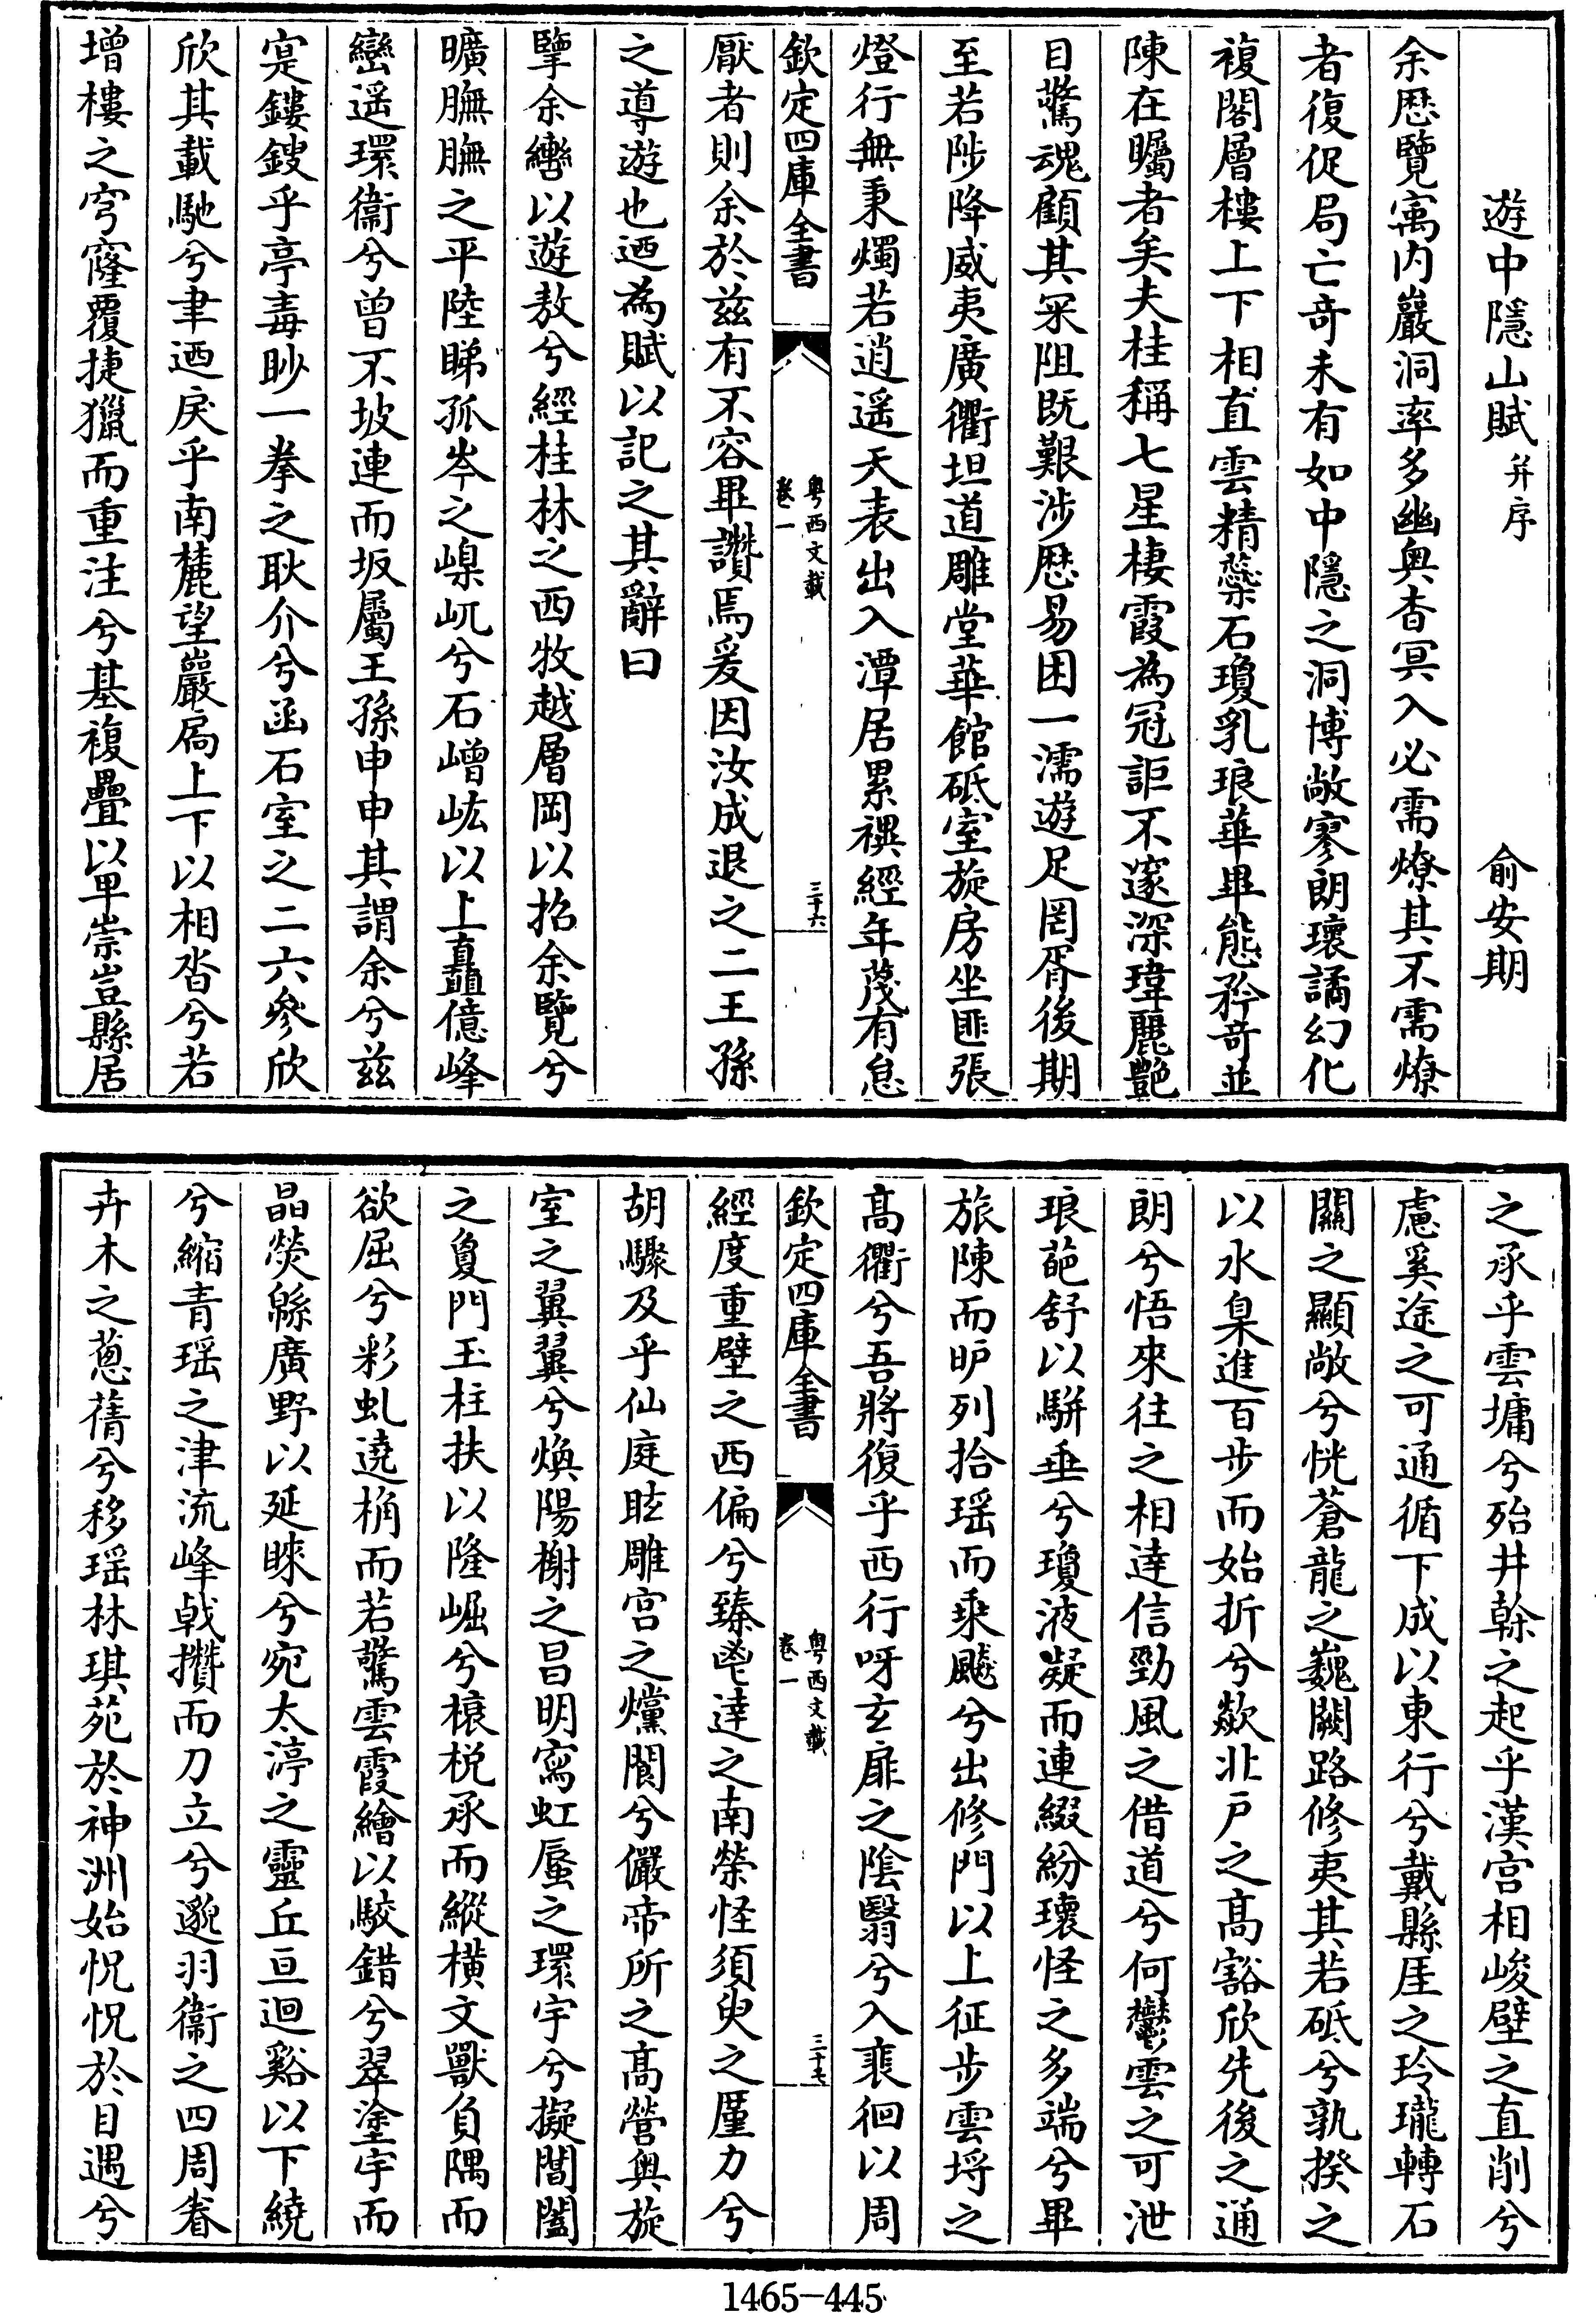 遊中隱山賦 并序 俞安期
余歷覽寓内巖洞率多幽奥杳冥入必需燎其不需燎
者復促局亡奇未有如中隱之洞博敞寥朗瓌譎幻化
複閣層樓上下相直雲精蘂石瓊乳琅華畢態矜奇並
陳在矚者矣夫桂稱七星棲霞為冠詎不邃深瑋麗艶
目驚魂顧其罙阻既艱涉歷易困一濡遊足罔胥後期
至若陟降威夷廣衢坦道雕堂華館砥室旋房坐匪張
燈行無秉燭若逍遥天表出入潭居累禩經年蔑有怠
欽定四庫全書 粤西文載 卷一 三十六
厭者則余於兹有不容畢讚焉爰因汝成退之二王孫
之導遊也迺為賦以記之其辭曰
擥余轡以遊敖兮經桂林之西牧越層岡以招余覽兮
曠膴膴之平陸睇孤岑之嵲屼兮石嶒峵以上矗億峰
巒遥環衞兮曾不坡連而坂屬王孫申申其謂余兮兹
寔鏤鎪乎亭毒眇一拳之耿介兮函石室之二六參欣
欣其載馳兮聿迺戾乎南麓望巖扃上下以相沓兮若
增樓之穹窿覆捷獵而重注兮基複疊以卑崇豈縣居
之承乎雲墉兮殆井榦之起乎漢宫相峻壁之直削兮
慮奚途之可通循下成以東行兮戴縣厓之玲瓏轉石
關之顯敞兮恍蒼龍之巍闕路修夷其若砥兮孰揆之
以水臬進百步而始折兮歘北戶之高豁欣先後之通
朗兮悟來往之相逹信勁風之借道兮何鬱雲之可泄
琅葩舒以駢垂兮瓊液凝而連綴紛瓌怪之多端兮畢
旅陳而昈列拾瑶而乘飈兮出修門以上征步雲埒之
高衢兮吾將復乎西行呀玄扉之陰翳兮入裵徊以周
欽定四庫全書 粤西文載 卷一 三十七
經度重壁之西偏兮臻鬯逹之南榮怪須臾之厪力兮
胡驟及乎仙庭眩雕宫之爣閬兮儼帝所之高營奥旋
室之翼翼兮煥陽榭之昌明寫虹蜃之環宇兮擬閶闔
之敻門玉柱扶以隆崛兮榱棁承而縱横文獸負隅而
欲屈兮彩虬遶桷而若驚雲霞繪以駮錯兮翠塗宇而
晶熒緜廣野以延睞兮宛太渟之靈丘亘迴谿以下繞
兮縮青瑶之津流峰戟攢而刀立兮邈羽衞之四周眷
卉木之蔥蒨兮移瑶林琪苑於神洲始怳怳於目遇兮
1465-445